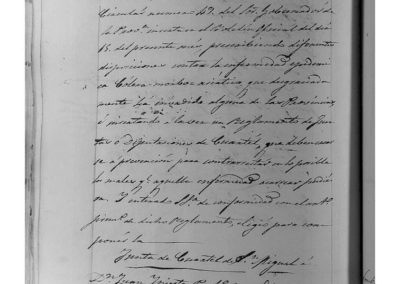 Circular numero 47 del Sr. Gobernador de
la Prov.ª inserta en el Boletin Oficial del dia
15 del presente mes prescribiendo diferentes
disposiciones contra la enfermedad epidemi
ca Cólera-morbo asiático que desgraciada
mente ha invadido alguna de las Provincias,
é insertando á la vez un Reglamento de Jun
tas ó Diputaciones de Cuartel, que deben crear
se á prevencion para contrarrestar en lo posible
los males q.e aquella enfermedad acarrear pudie
ra. Y enterado S.S.ª de conformidad con el art.º
prim.º de dicho Reglamento, eligió para com
poner la
Junta de Cuartel de S.n Miguel á
D.n Juan